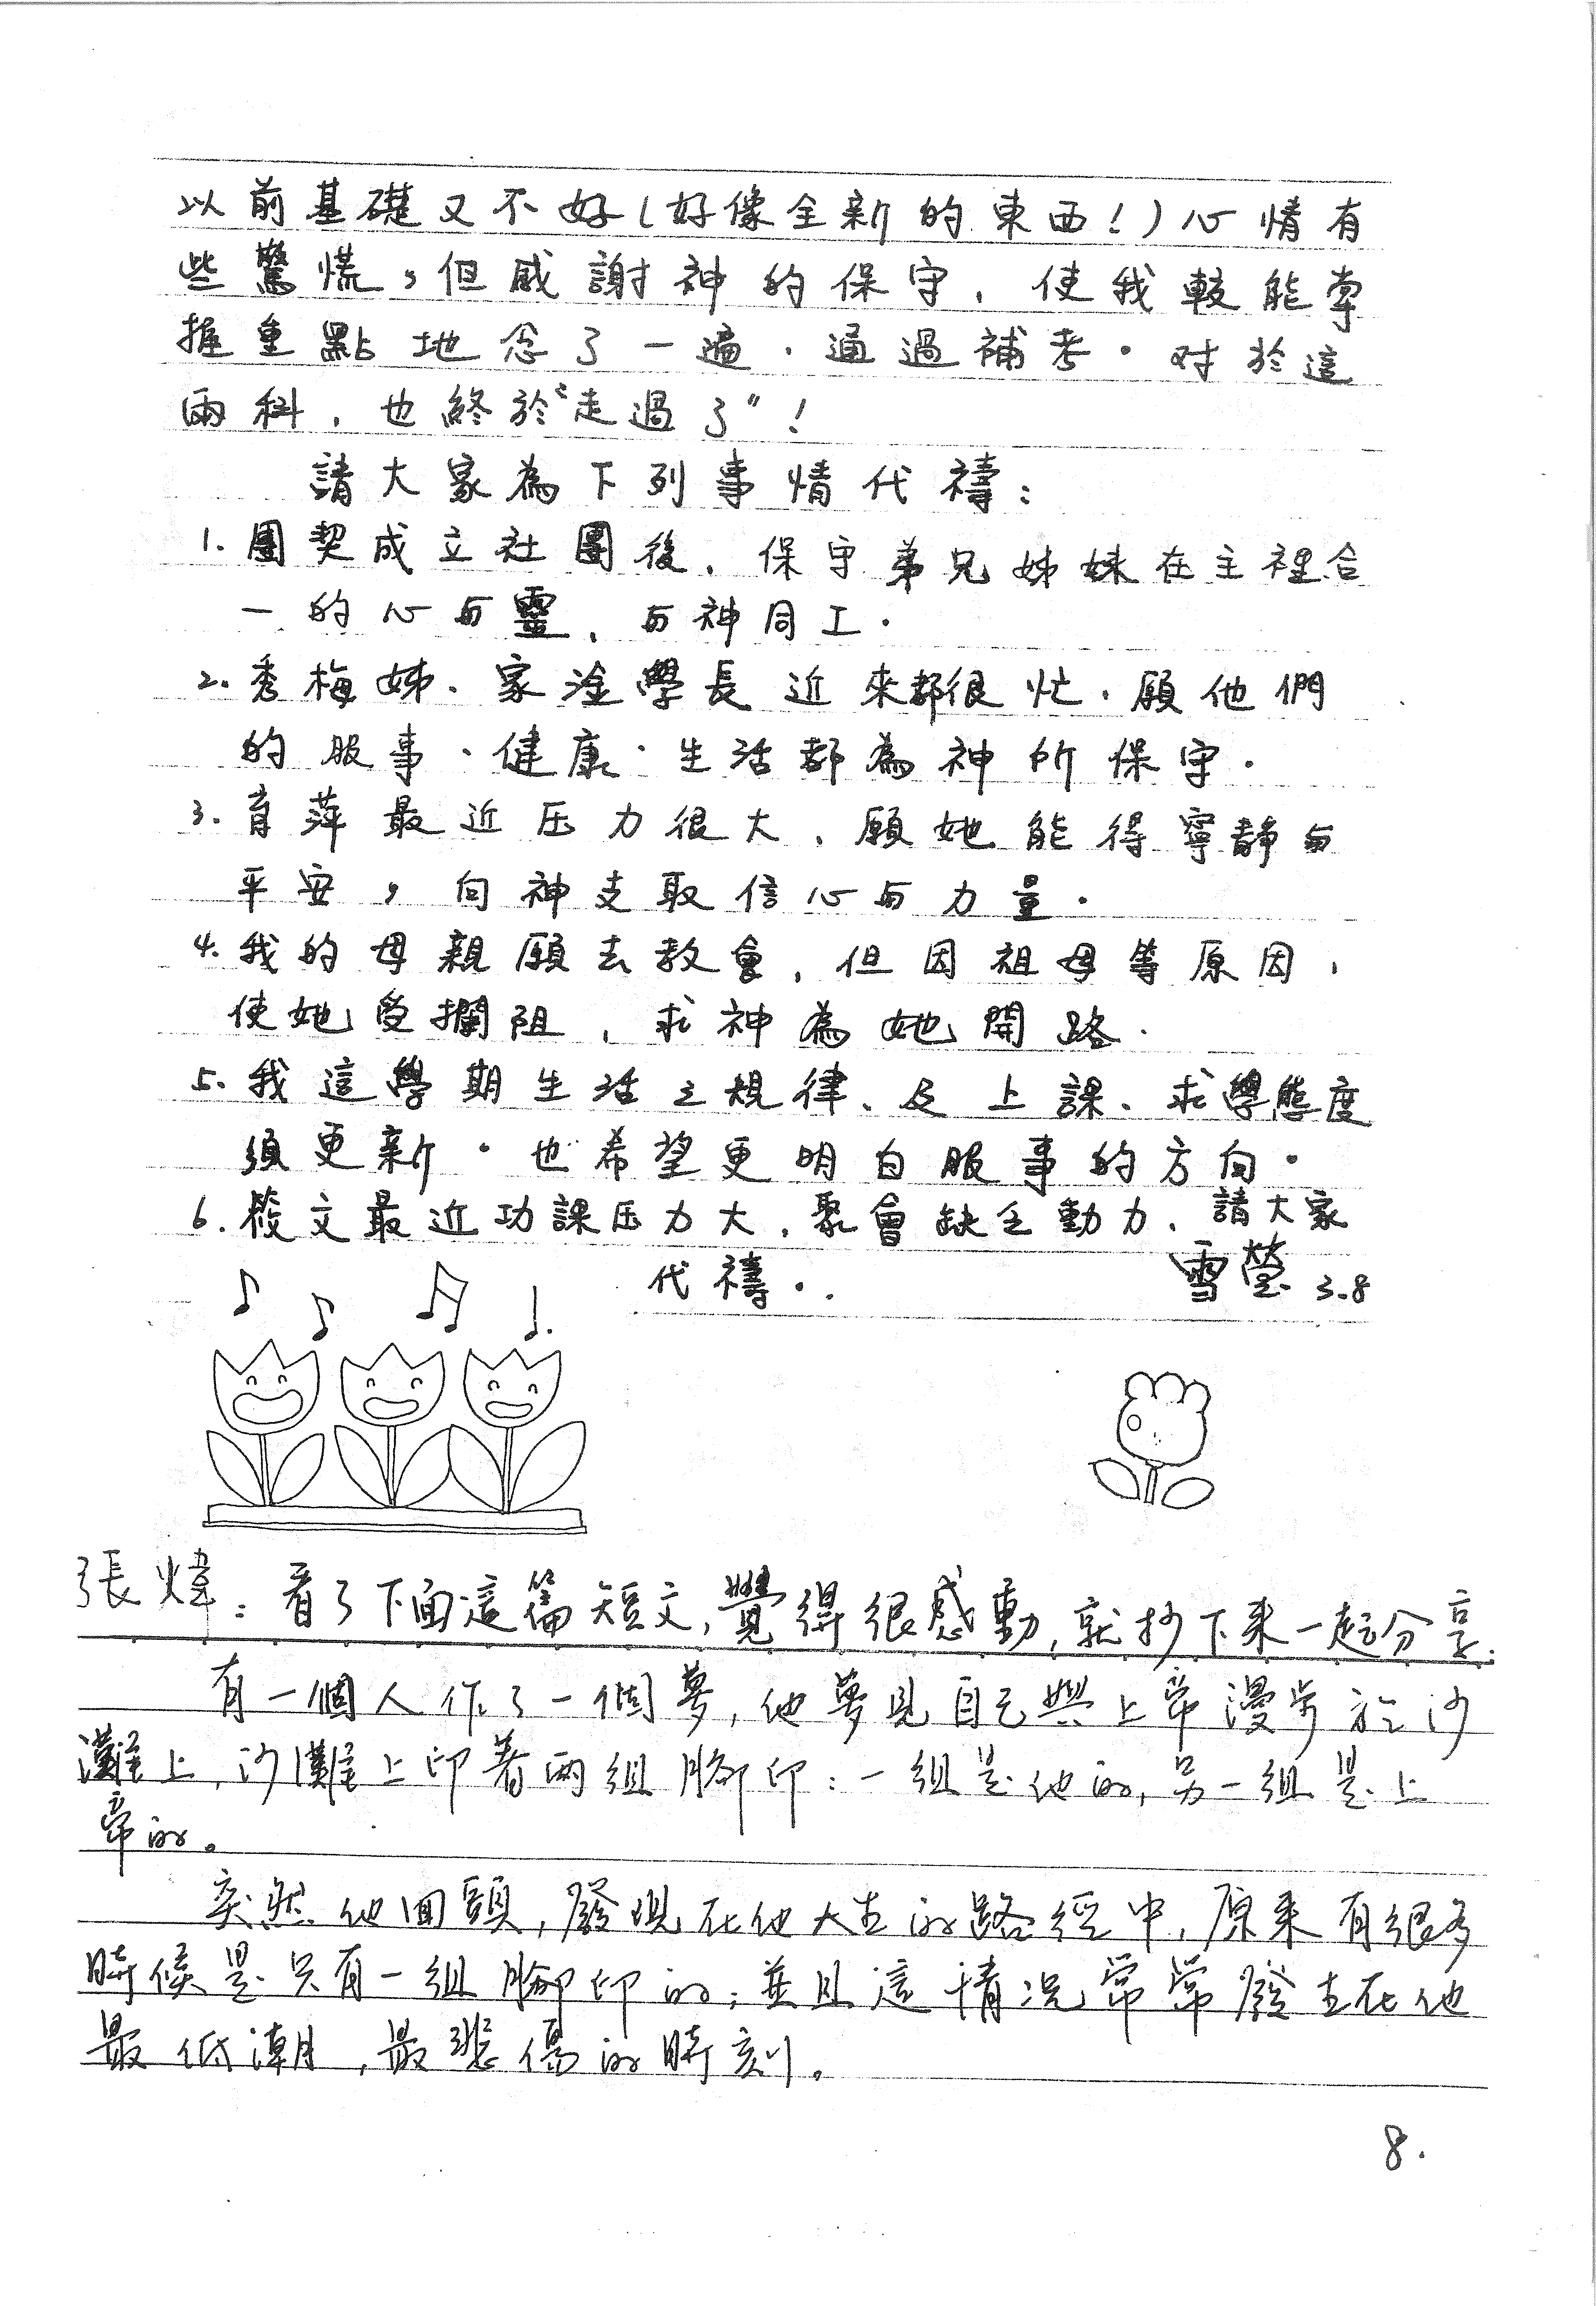 以前基礎又不好(好像全新的東西!)心情有
些驚慌,但感謝神的保守,使我較能掌
握重點地念了一遍,通過補考。对於這
兩科,也終於“走過了”!
請大家為下列事情代禱:
1.團契成立社團後,保守弟兄姊妹在主裡合
一的心与靈,与神同工。
2.秀梅姊、家淦學長近來都很忙,願他們
的服事、健康、生活都為神所保守。
3.育萍最近压力很大,願她能得寧靜与
平安,向神支取信心与力量。
4.我的母親願去教會,但因祖母等原因,
使她受攔阻,求神為她開路.
5.我這學期生活之規律、及上課、求學態度
須更新。也希望更明白服事的方向。
6.筱文最近功課压力大,聚會缺乏動力,請大家
代禱..
雪瑩 3.8
張煒:看了下面這篇短文,覺得很感動,就抄下来一起分享:
有一個人作了一個夢,他夢見自己與上帝漫步於沙
灘上,沙灘上印着兩組腳印:一組是他的,另一組是上
帝的。
突然他回頭,發現在他人生的路徑中,原来有很多
時候是只有一組腳印的;並且這情況常常發生在他
最低潮,最悲傷的時刻。
8.